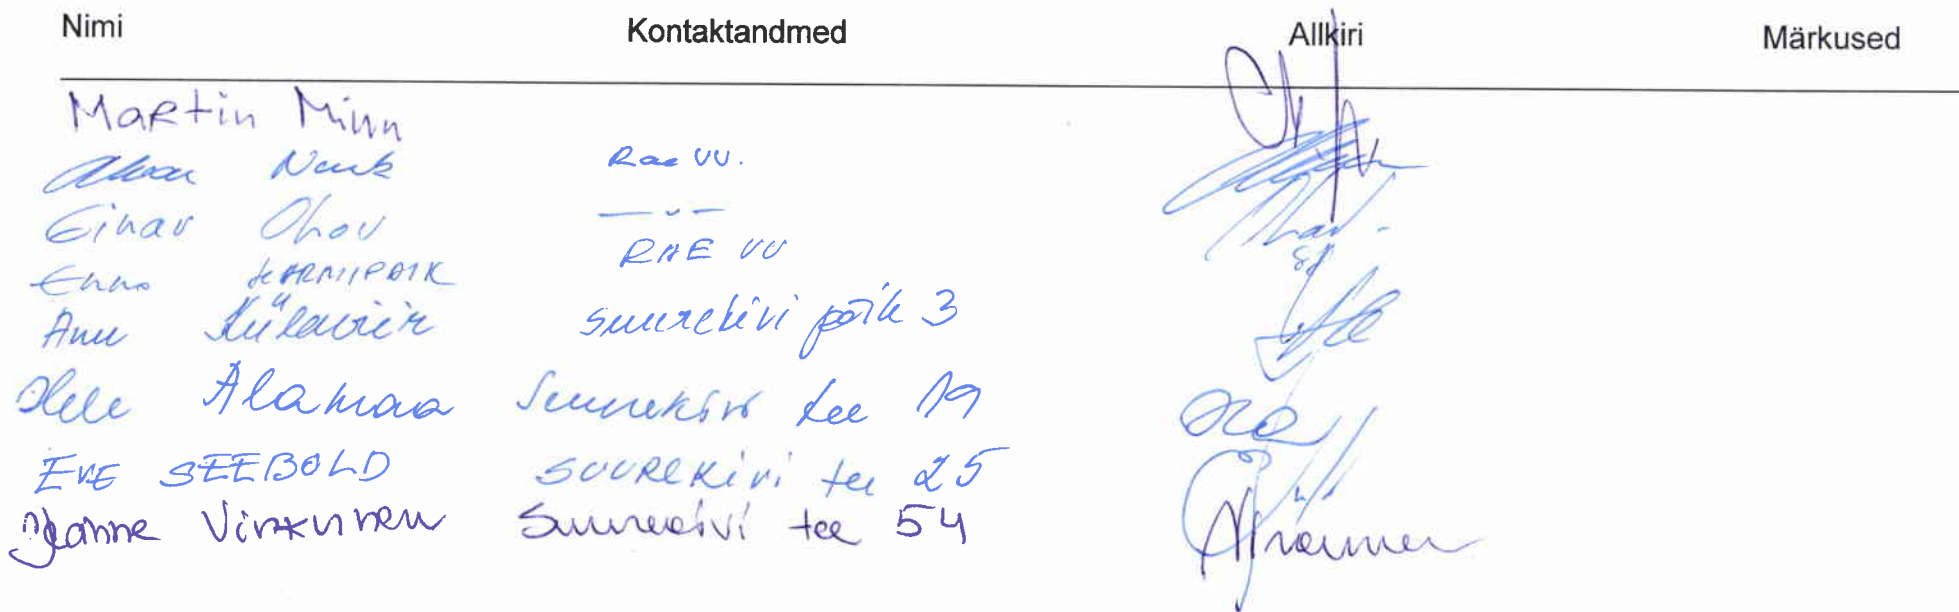 Nimi Kontaktandmed Allkiri Märkused
Martin Minn
Rae VV.
Einar Ohov — " —
Enno KARMIPOIK RAE VV
Anu Külaviir Suurekivi põik 3
Hele Alamaa Suurekivi tee 19
EVE SEEBOLD SUUREKIVI tee 25
Jeanne Virkunen Suurekivi tee 54